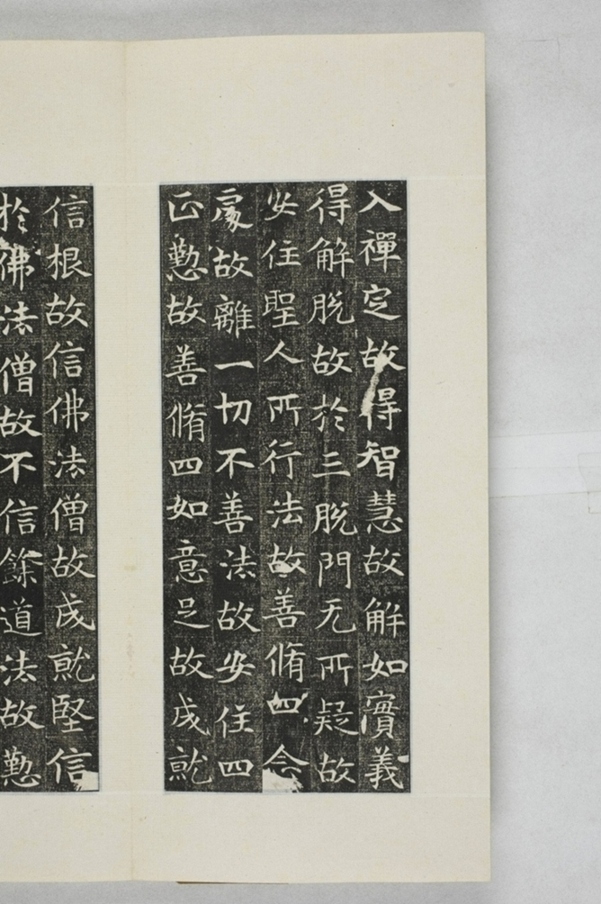 入禪定故得智慧故解如實義
得解脫故於三脫門无所疑故
安住聖人所行法故善脩四念
處故離一切不善法故安住四
正懃故善脩四如意足故成就
信根故信佛法僧故成就堅信
於佛法僧故不信餘道法故懃